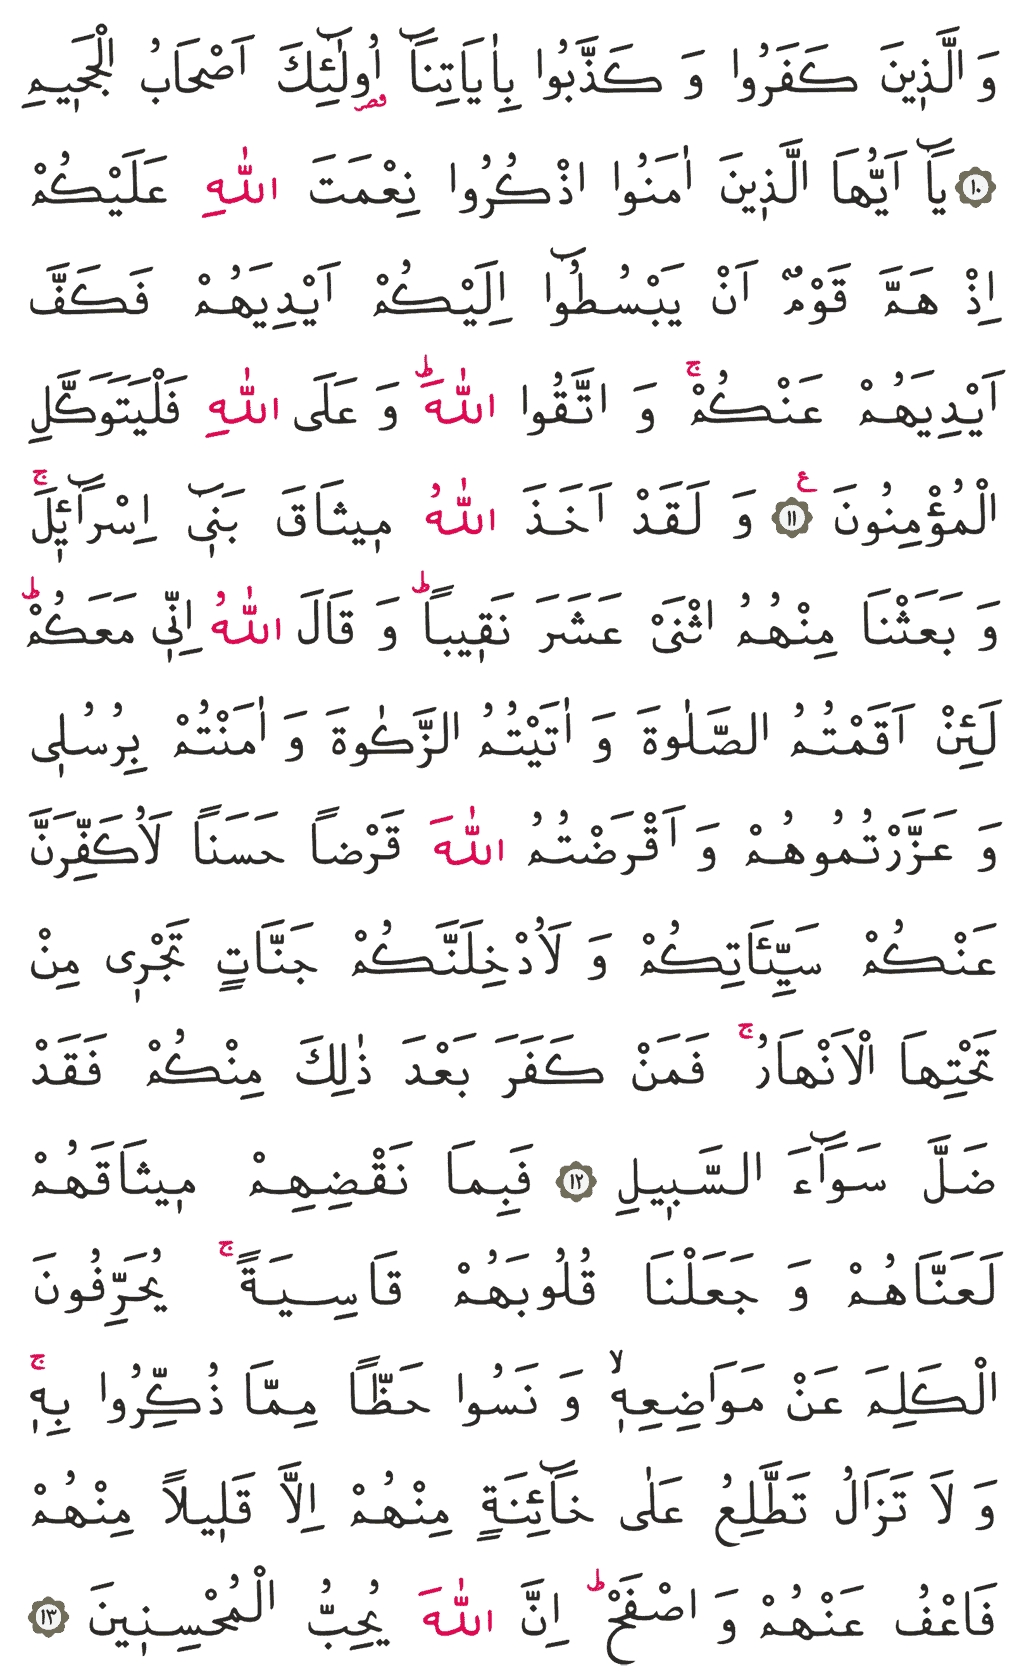 وَ الَّذٖينَ كَفَرُوا وَ كَذَّبُوا بِاٰيَاتِنَٓا اُو۬لٰٓئِكَ اَصْحَابُ الْجَحٖيمِ
﴿١٠﴾ يَٓا اَيُّهَا الَّذٖينَ اٰمَنُوا اذْكُرُوا نِعْمَتَ اللّٰهِ عَلَيْكُمْ
اِذْ هَمَّ قَوْمٌ اَنْ يَبْسُطُٓوا اِلَيْكُمْ اَيْدِيَهُمْ فَكَفَّ
اَيْدِيَهُمْ عَنْكُمْۚ وَ اتَّقُوا اللّٰهَؕ وَ عَلَى اللّٰهِ فَلْيَتَوَكَّلِ
الْمُؤْمِنُونَ ﴿١١﴾ ع وَ لَقَدْ اَخَذَ اللّٰهُ مٖيثَاقَ بَنٖٓى اِسْرَٓائٖلَۚ
وَ بَعَثْنَا مِنْهُمُ اثْنَىْ عَشَرَ نَقٖيبًاؕ وَ قَالَ اللّٰهُ اِنّٖى مَعَكُمْؕ
لَئِنْ اَقَمْتُمُ الصَّلٰوةَ وَ اٰتَيْتُمُ الزَّكٰوةَ وَ اٰمَنْتُمْ بِرُسُلٖى
وَ عَزَّرْتُمُوهُمْ وَ اَقْرَضْتُمُ اللّٰهَ قَرْضًا حَسَنًا لَاُكَفِّرَنَّ
عَنْكُمْ سَيِّئَاتِكُمْ وَ لَاُدْخِلَنَّكُمْ جَنَّاتٍ تَجْرٖى مِنْ
تَحْتِهَا الْاَنْهَارُۚ فَمَنْ كَفَرَ بَعْدَ ذٰلِكَ مِنْكُمْ فَقَدْ
ضَلَّ سَوَٓاءَ السَّبٖيلِ ﴿١٢﴾ فَبِمَا نَقْضِهِمْ مٖيثَاقَهُمْ
لَعَنَّاهُمْ وَ جَعَلْنَا قُلُوبَهُمْ قَاسِيَةًۚ يُحَرِّفُونَ
الْكَلِمَ عَنْ مَوَاضِعِهٖۙ وَ نَسُوا حَظًّا مِمَّا ذُكِّرُوا بِهٖۚ
وَ لَا تَزَالُ تَطَّلِعُ عَلٰى خَٓائِنَةٍ مِنْهُمْ اِلَّا قَلٖيلًا مِنْهُمْ
فَاعْفُ عَنْهُمْ وَ اصْفَحْؕ اِنَّ اللّٰهَ يُحِبُّ الْمُحْسِنٖينَ ﴿١٣﴾